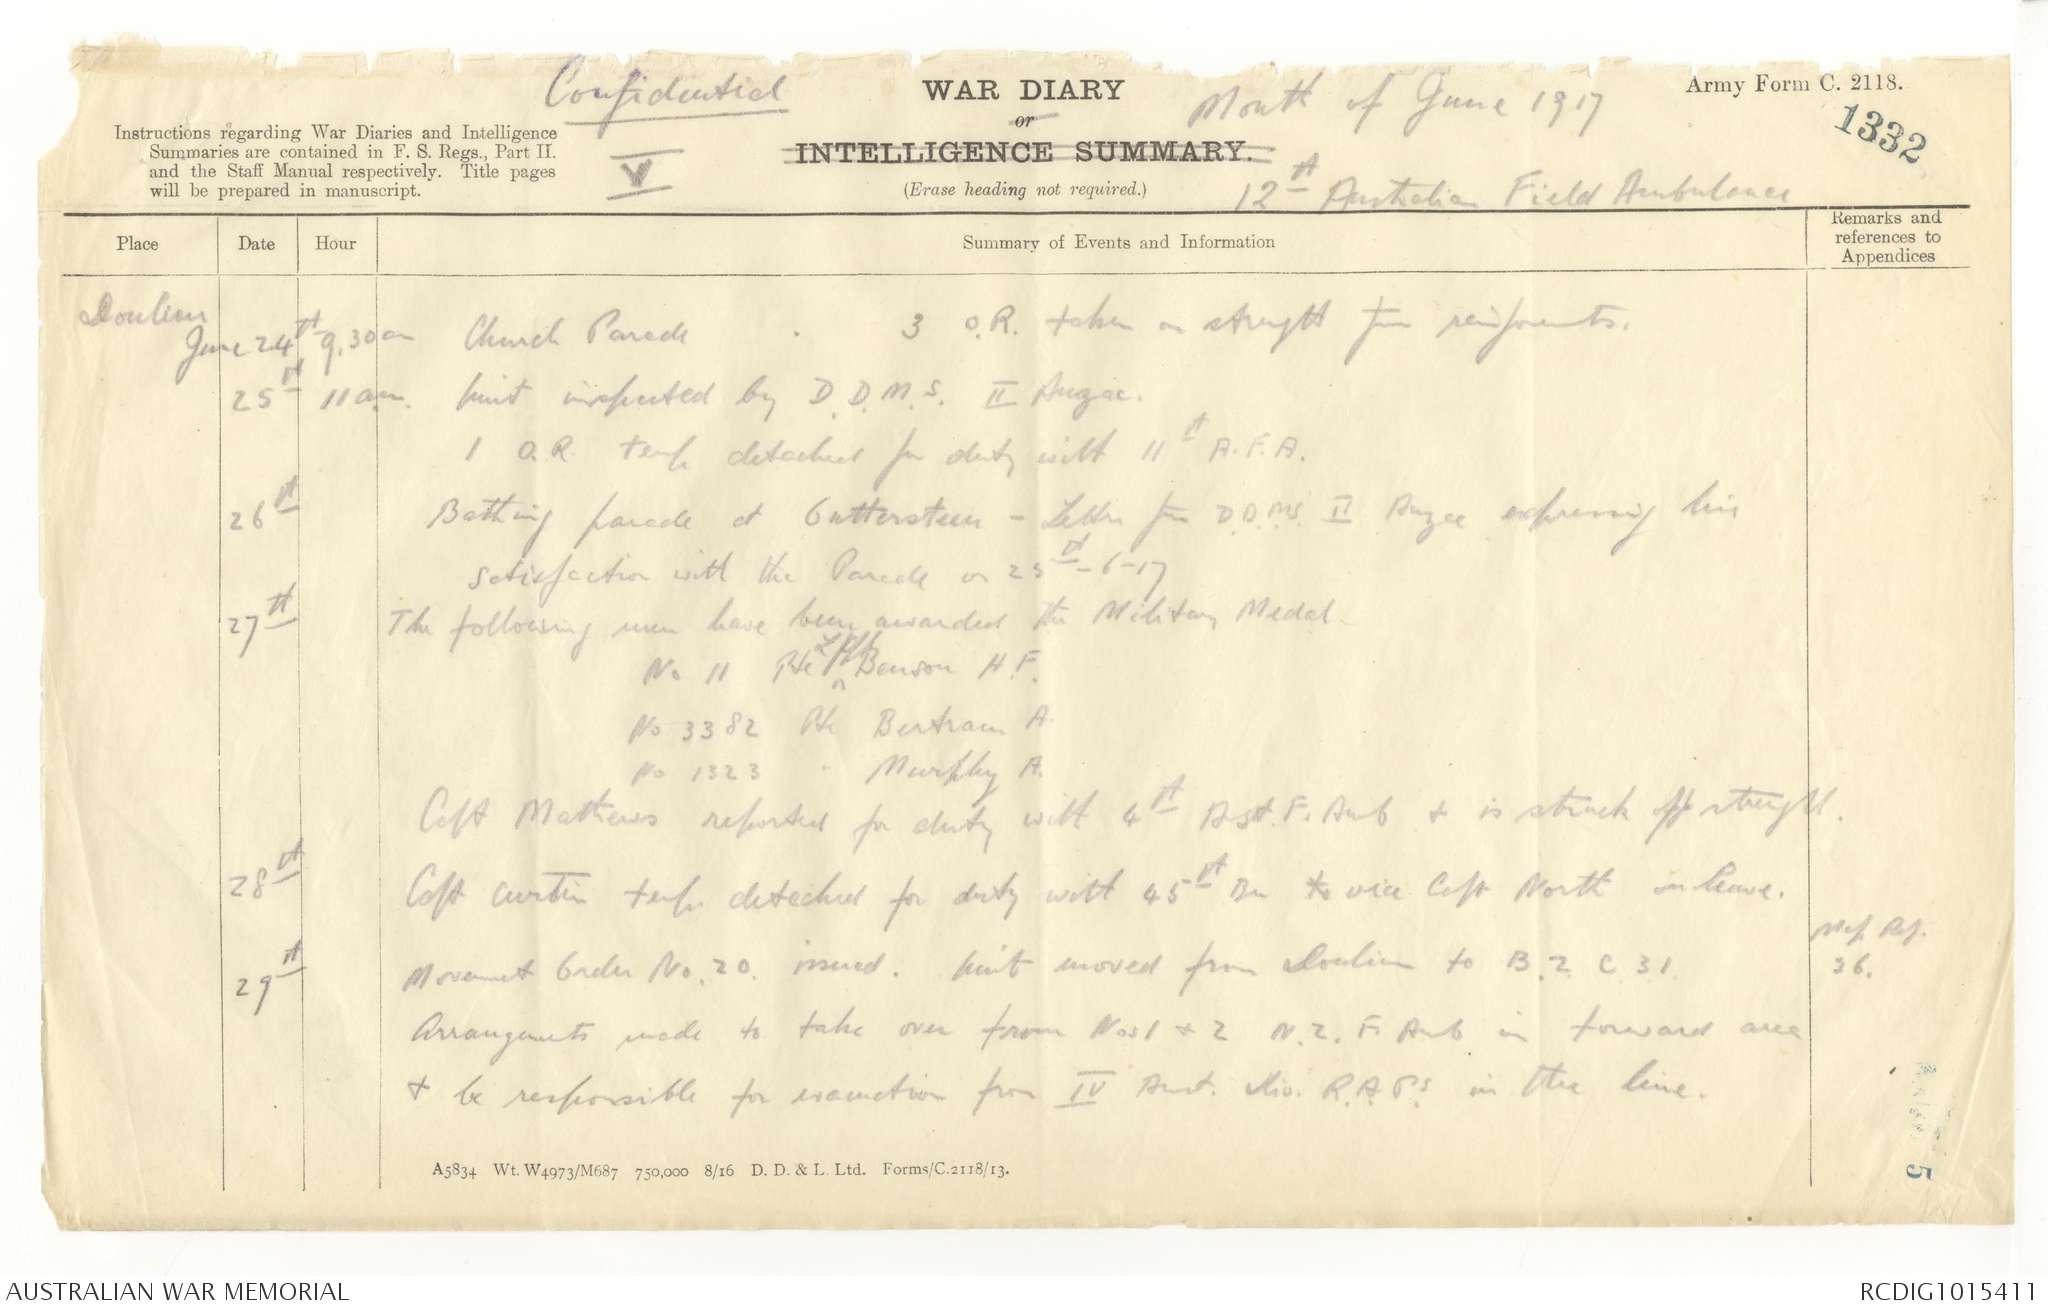 Confidential
WAR DIARY
or
INTELLIGENCE SUMMARY.
(Erase heading not required.)
Month of June 1917
12th Australian Field Ambulance
Army Form C. 2118.
1332
Instructions regarding War Diaries and Intelligence
Summaries are contained in F. S. Regs., Part II.
and the Staff Manual respectively. Title pages
will be prepared in manuscript.
V
Place Date Hour Summary of Events and Information Remarks and references to Appendices
Doulieu
June 24th 9.30am Church Parade 3 O.R. taken on strength from reinforments.
25th 11 a.m. Unit inspected by D.D.M.S. II Anzac.
1 O.R. temp detached for duty with 11th A.F.A.
26th Bathing parade at Outtersteen - Letter from D.D.M.S. II Anzac expressing his
satisfaction with the Parade on 25th-6-17
27th The following men have been awarded the Military Medal
No 11 Pte Benson H.F.
No 3382 Pte Bertram A.
No 1323 " Murphy A.
Capt Mathews reported for duty with 4th Aust. F. Amb + is struck off strength.
28th Capt Curtin temp detached for duty with 45th Bn to vice Capt North on leave.
29th Movement Order No. 20. issued. Unit moved from Doulieu to B.2.C.31. Map Ref. 36.
Arrangements made to take over from Nos 1 + 2 N.Z. F. Amb in forward area
+ be responsible for evacuation from IV Aust. Div. R.A.Ps. in the line.
A5834 Wt. W4973/M687 750,000 8/16 D. D. & L. Ltd. Forms/C.2118/13.
5
AUSTRALIAN WAR MEMORIAL
RCDIG1015411